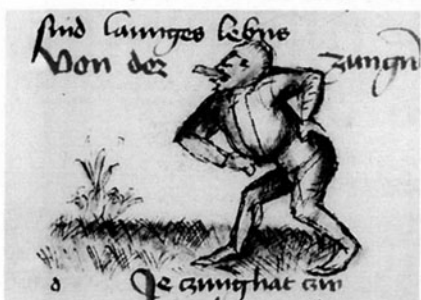 sind launges lebns
Von der zungn
d
Je czung hat czw